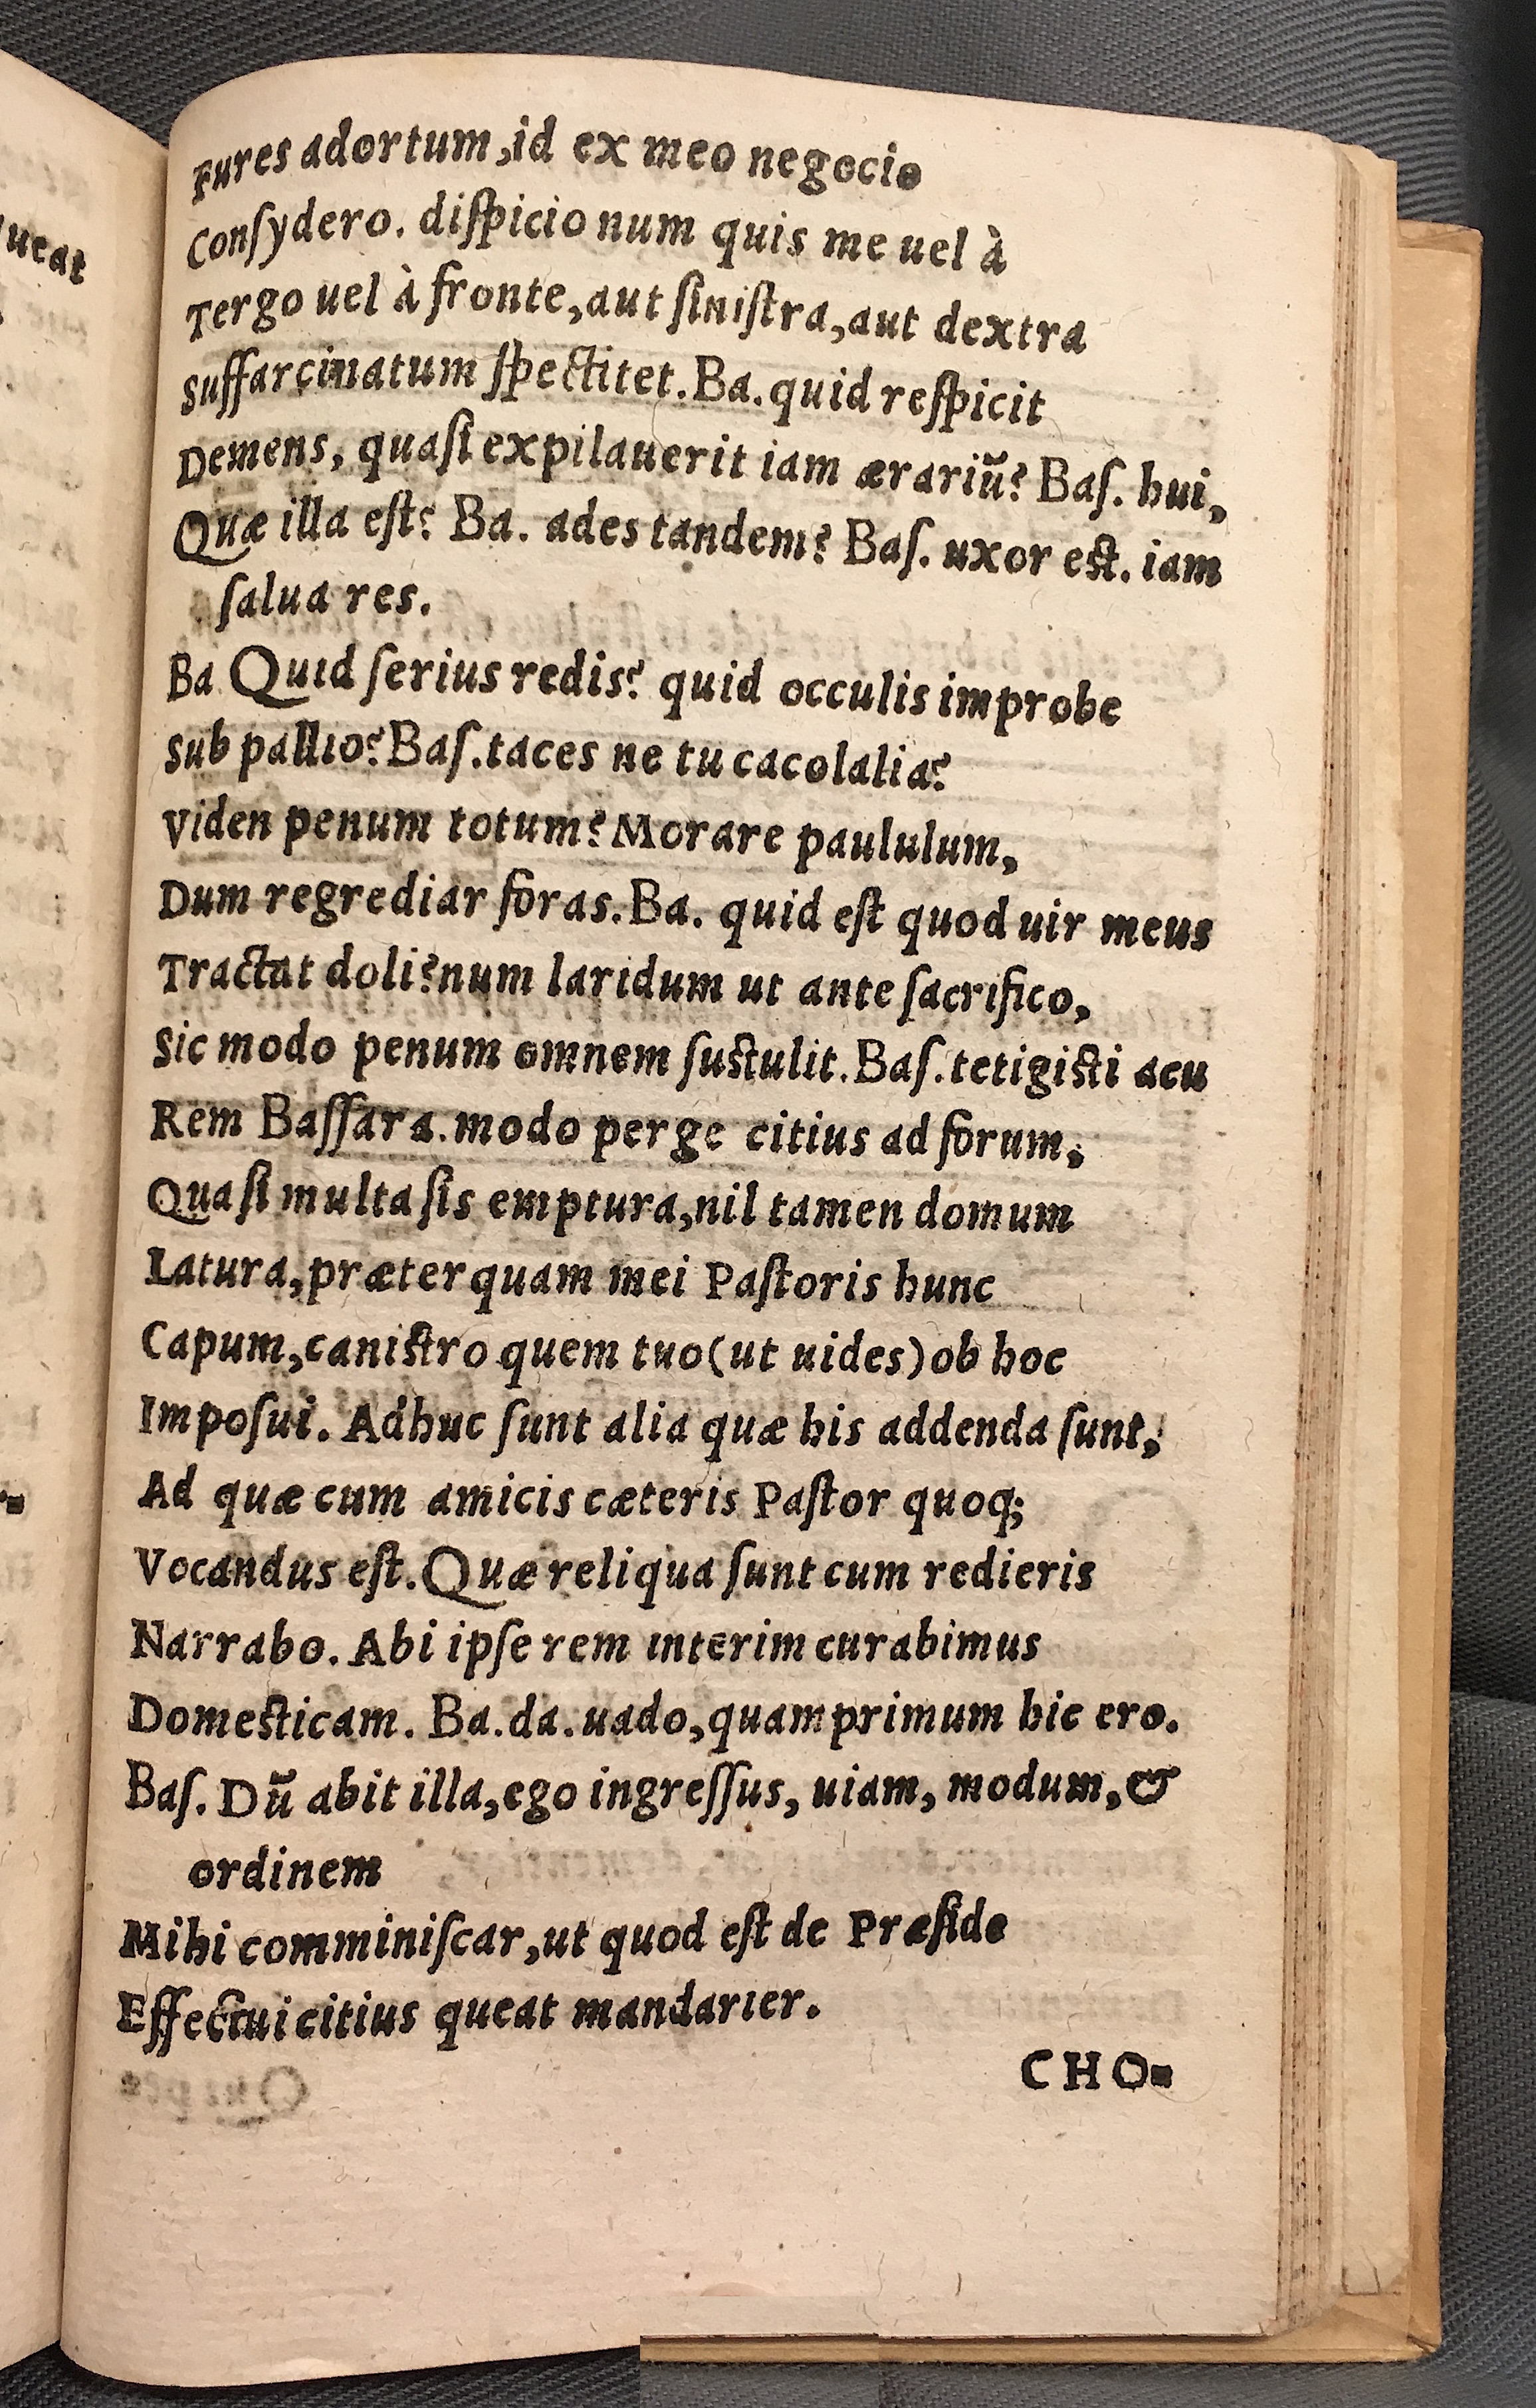 Fures adortum, id ex meo negocio
Conſydero. diſpicio num quis me uel à
Tergo uel à fronte, aut ſiniſtra, aut dextra
Suffarcinatum ſpectitet. Ba. quid reſpicit
Demens, quaſi expilauerit iam ærariū? Baſ. hui,
Quæ illa eſt? Ba. ades tandem? Baſ. uxor eſt. iam
ſalua res.
Ba Quid ſerius redis? quid occulis improbe
Sub pallio? Baſ. taces ne tu cacolalia?
Viden penum totum? Morare paululum,
Dum regrediar foras. Ba. quid eſt quod uir meus
Tractat doli? num laridum ut ante ſacrifico,
Sic modo penum omnem ſuſtulit. Baſ. tetigiſti acu
Rem Baſſara. modo perge citius ad forum,
Quaſi multa ſis emptura, nil tamen domum
Latura, præterquam mei Paſtoris hunc
Capum, caniſtro quem tuo (ut uides) ob hoc
Impoſui. Adhuc ſunt alia quæ his addenda ſunt,
Ad quæ cum amicis cæteris Paſtor quoq;
Vocandus eſt. Quæ reliqua ſunt cum redieris
Narrabo. Abi ipſe rem interim curabimus
Domeſticam. Ba. da. uado, quamprimum hic ero.
Baſ. Dū abit illa, ego ingreſſus, uiam, modum, &
ordinem
Mihi comminiſcar, ut quod eſt de Præſide
Effectui citius queat mandarier.
CHO=